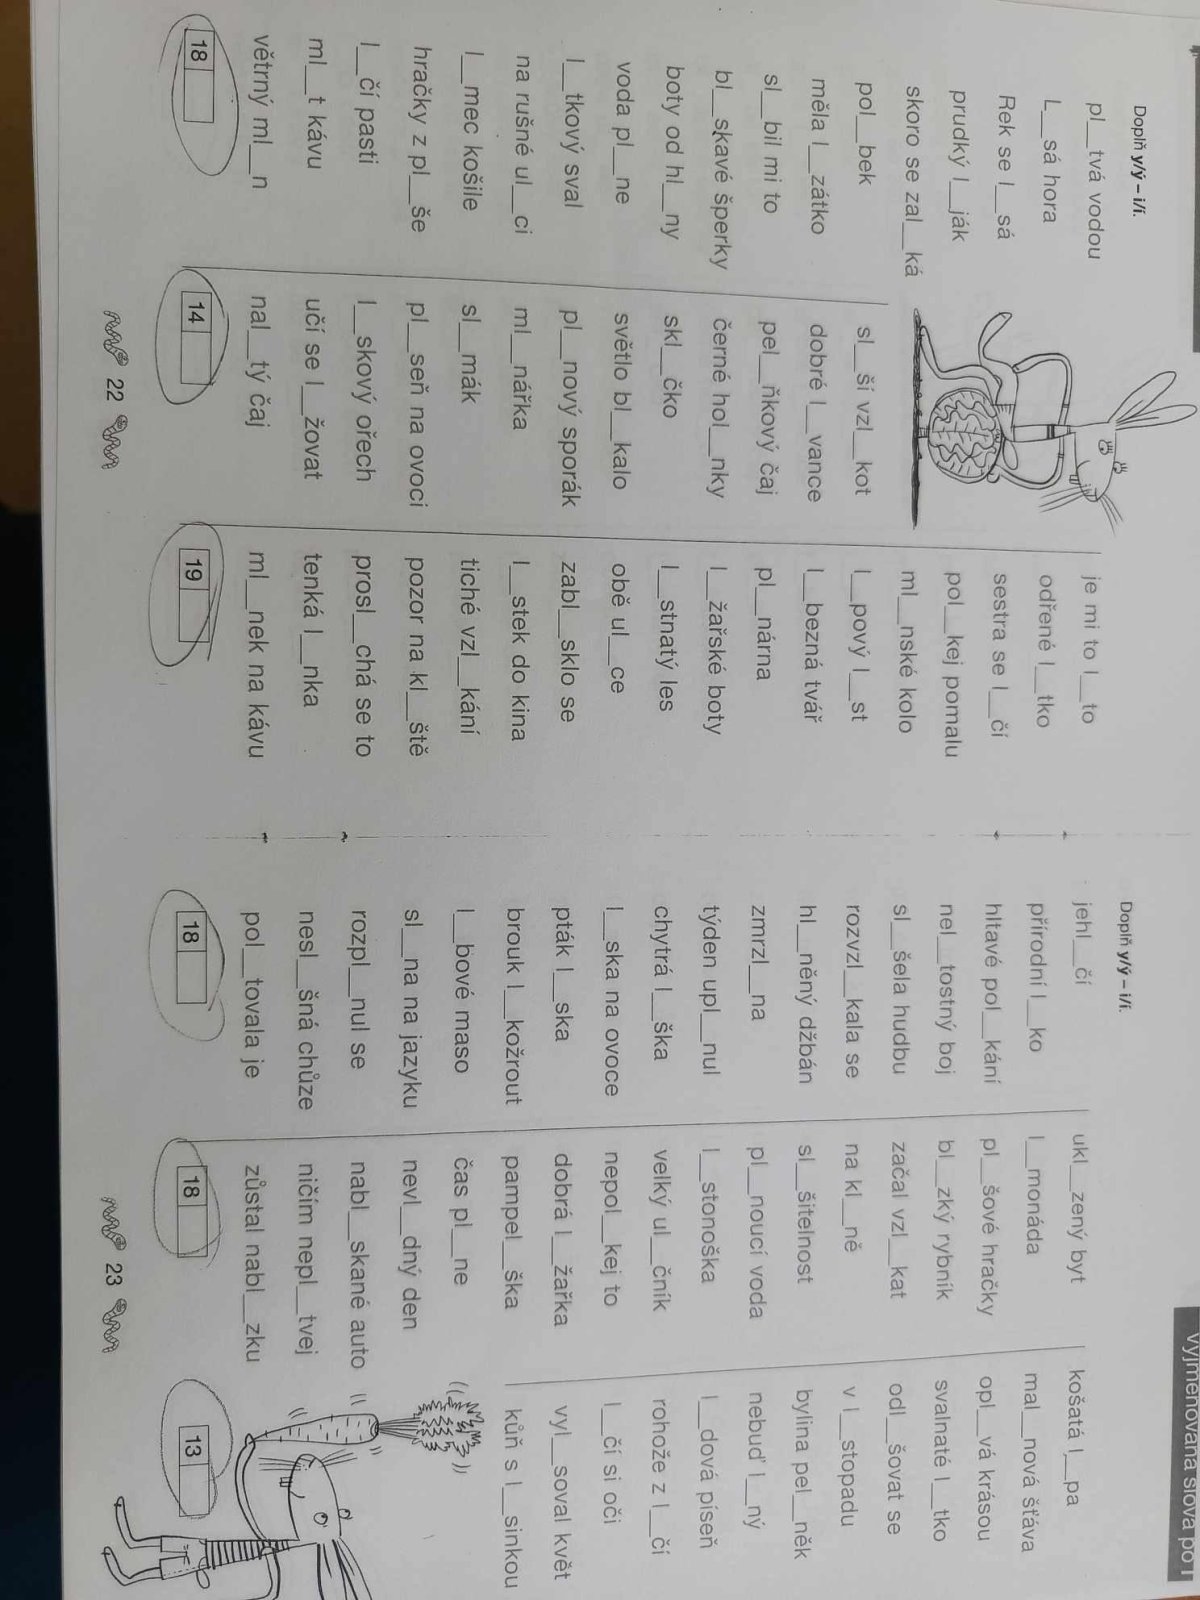 Doplň y/ý – i/í.
pl__tvá vodou
L__sá hora
Rek se l__sá
prudký l__ják
skoro se zal__ká
pol__bek
měla l__zátko
sl__bil mi to
bl__skavé šperky
boty od hl__ny
voda pl__ne
l__tkový sval
na rušné ul__ci
l__mec košile
hračky z pl__še
l__čí pasti
ml__t kávu
větrný ml__n
18
sl__ší vzl__kot
dobré l__vance
pel__ňkový čaj
černé hol__nky
skl__čko
světlo bl__kalo
pl__nový sporák
ml__nářka
sl__mák
pl__seň na ovoci
l__skový ořech
učí se l__žovat
nal__tý čaj
14
je mi to l__to
odřené l__tko
sestra se l__čí
pol__kej pomalu
ml__nské kolo
l__pový l__st
l__bezná tvář
pl__nárna
l__žařské boty
l__stnatý les
obě ul__ce
zabl__sklo se
l__stek do kina
tiché vzl__kání
pozor na kl__ště
prosl__chá se to
tenká l__nka
ml__nek na kávu
19
22
Vyjmenovaná slova po l
Doplň y/ý – i/í.
jehl__čí
přírodní l__ko
hltavé pol__kání
nel__tostný boj
sl__šela hudbu
rozvzl__kala se
hl__něný džbán
zmrzl__na
týden upl__nul
chytrá l__ška
l__ska na ovoce
pták l__ska
brouk l__kožrout
l__bové maso
sl__na na jazyku
rozpl__nul se
nesl__šná chůze
pol__tovala je
18
ukl__zený byt
l__monáda
pl__šové hračky
bl__zký rybník
začal vzl__kat
na kl__ně
sl__šitelnost
pl__noucí voda
l__stonoška
velký ul__čník
nepol__kej to
dobrá l__žařka
pampel__ška
čas pl__ne
nevl__dný den
nabl__skané auto
ničím nepl__tvej
zůstal nabl__zku
18
košatá l__pa
mal__nová šťáva
opl__vá krásou
svalnaté l__tko
odl__šovat se
v l__stopadu
bylina pel__něk
nebuď l__ný
l__dová píseň
rohože z l__čí
l__čí si oči
vyl__soval květ
kůň s l__sinkou
13
23